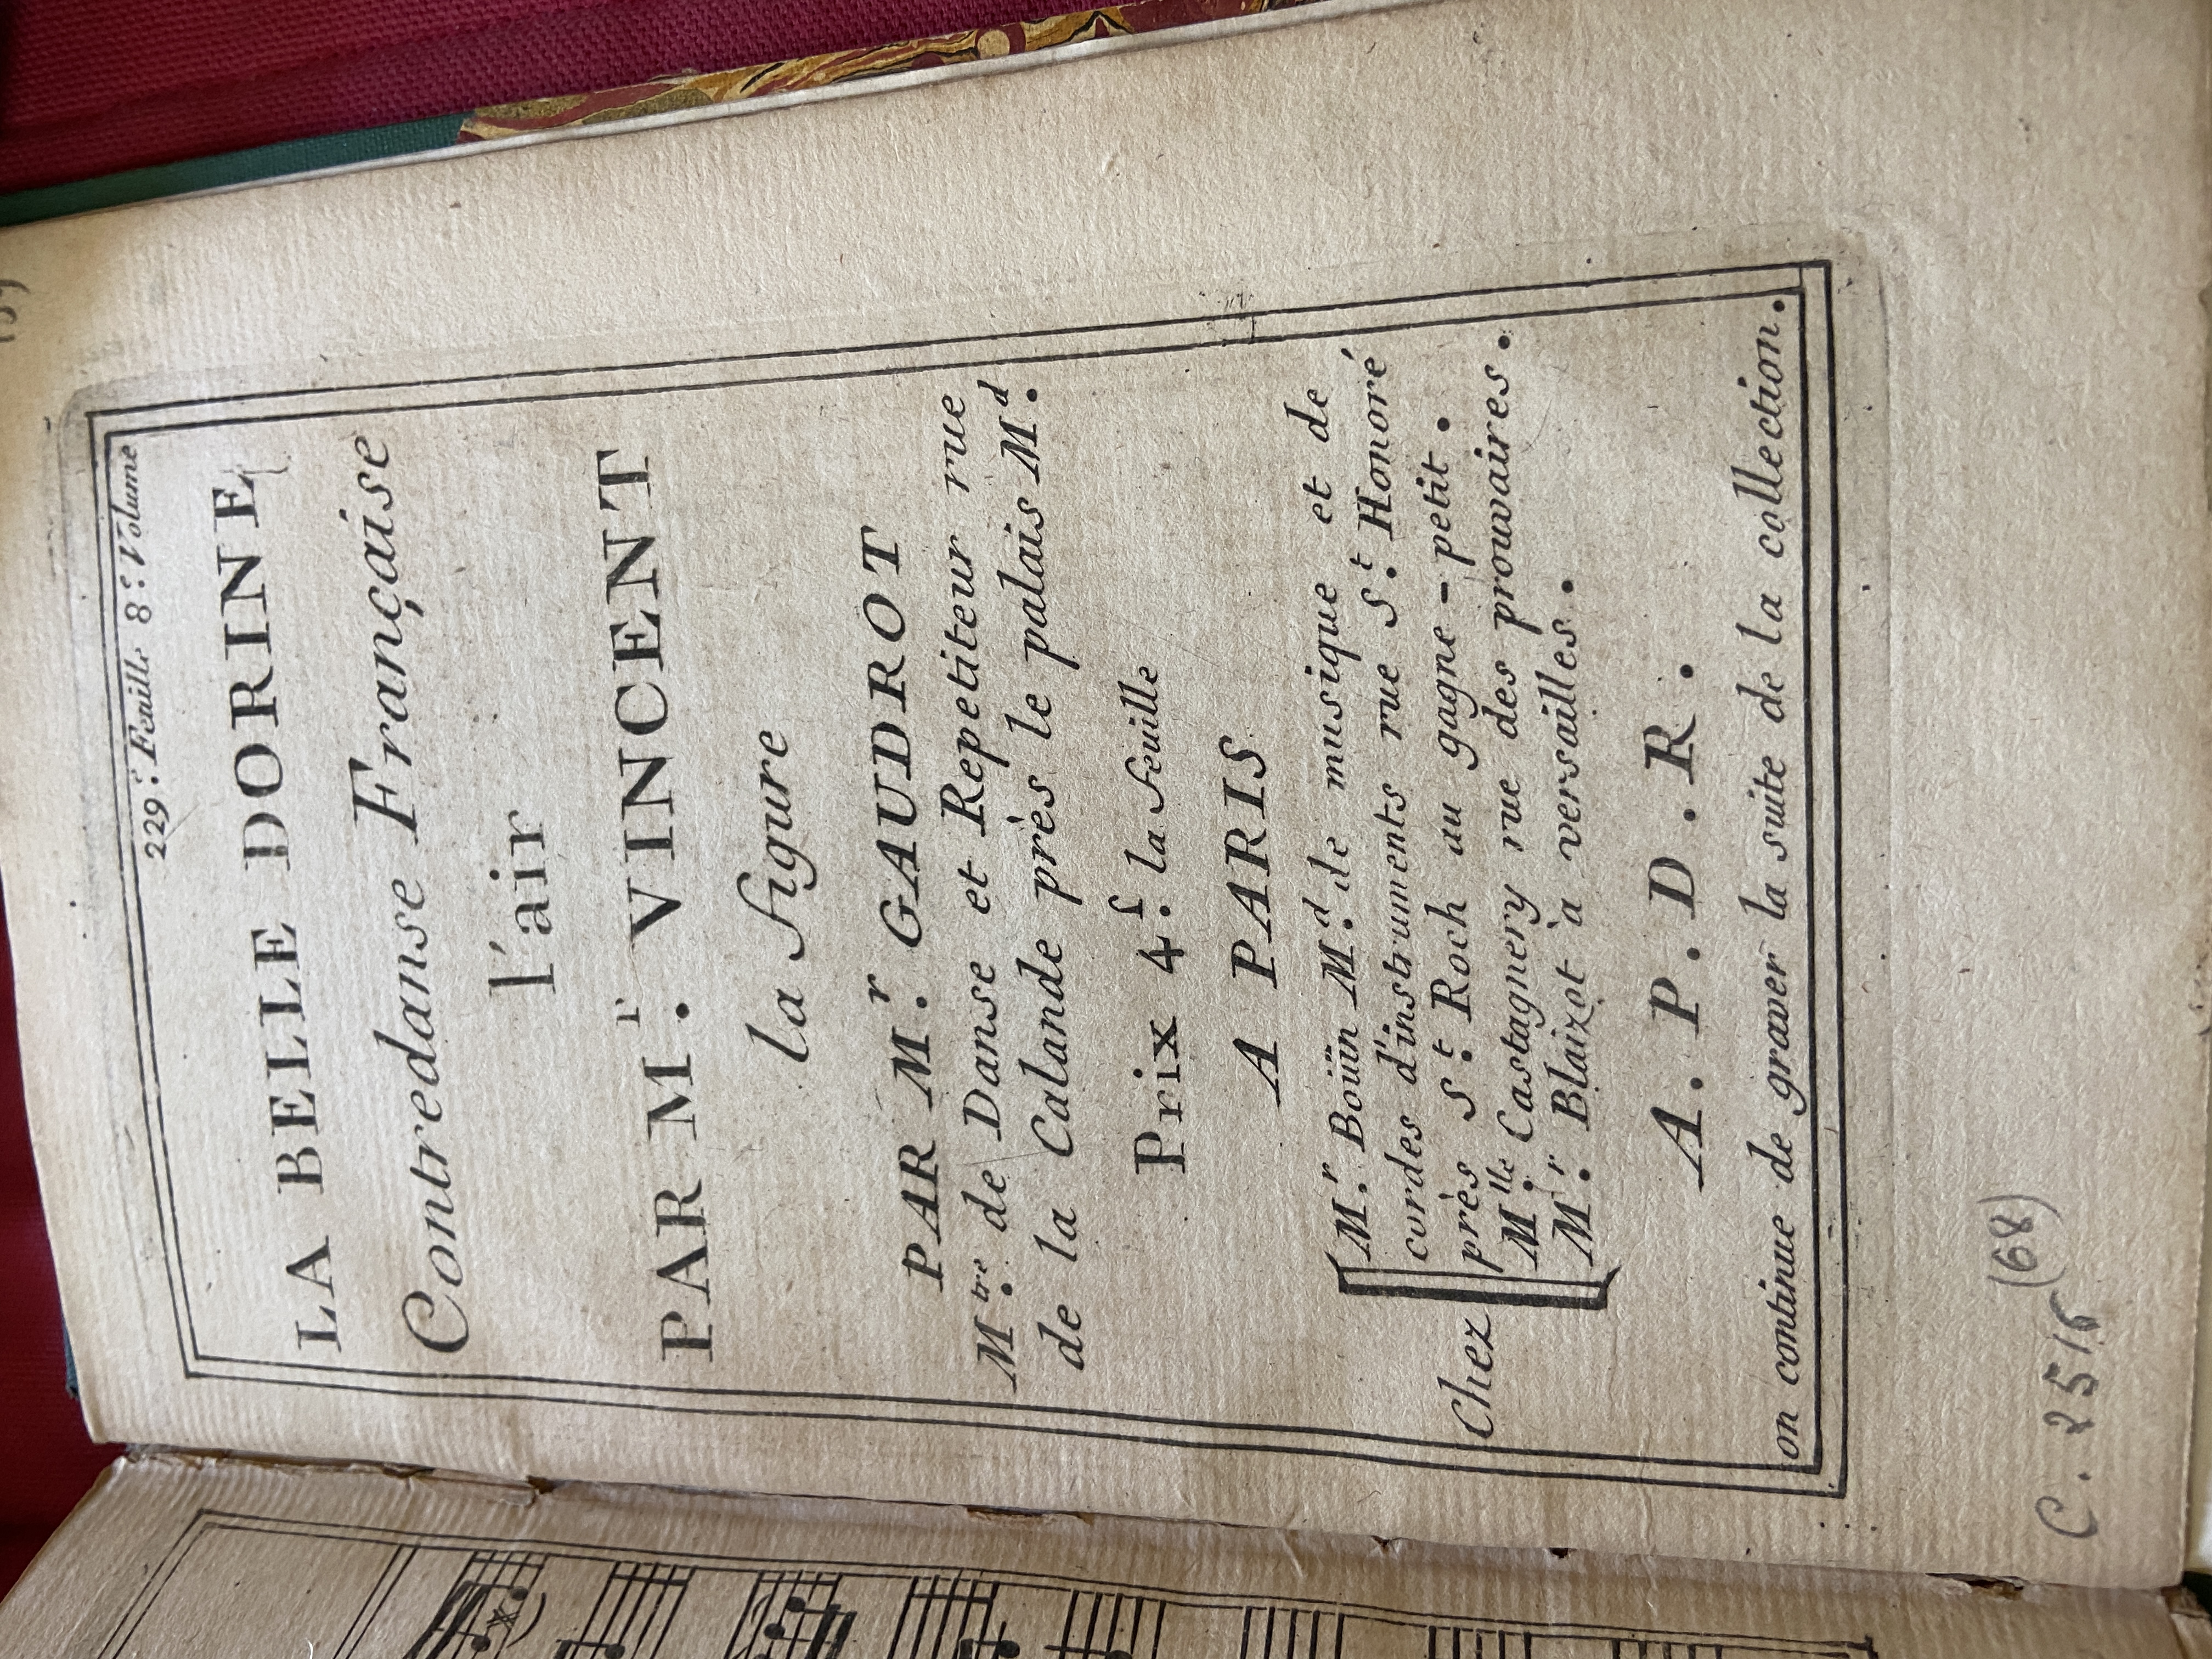 229.e Feuille 8.e Volume
LA BELLE DORINE
Contredanse Française
l'air
PAR M.r VINCENT
la figure
PAR M.r GAUDROT
M.tre de Danse et Repetiteur rue
de la Calande près le palais M.d
Prix 4.f la feuille
A PARIS
Chez
M.r Boüin M.d de musique et de
cordes d'instruments rue S.t Honoré
près S.t Roch au gagne-petit.
M.lle Castagnery rue des prouvaires.
M.r Blaizot à versailles.
A. P. D. R.
on continue de graver la suite de la collection.
C. 2515 (68)